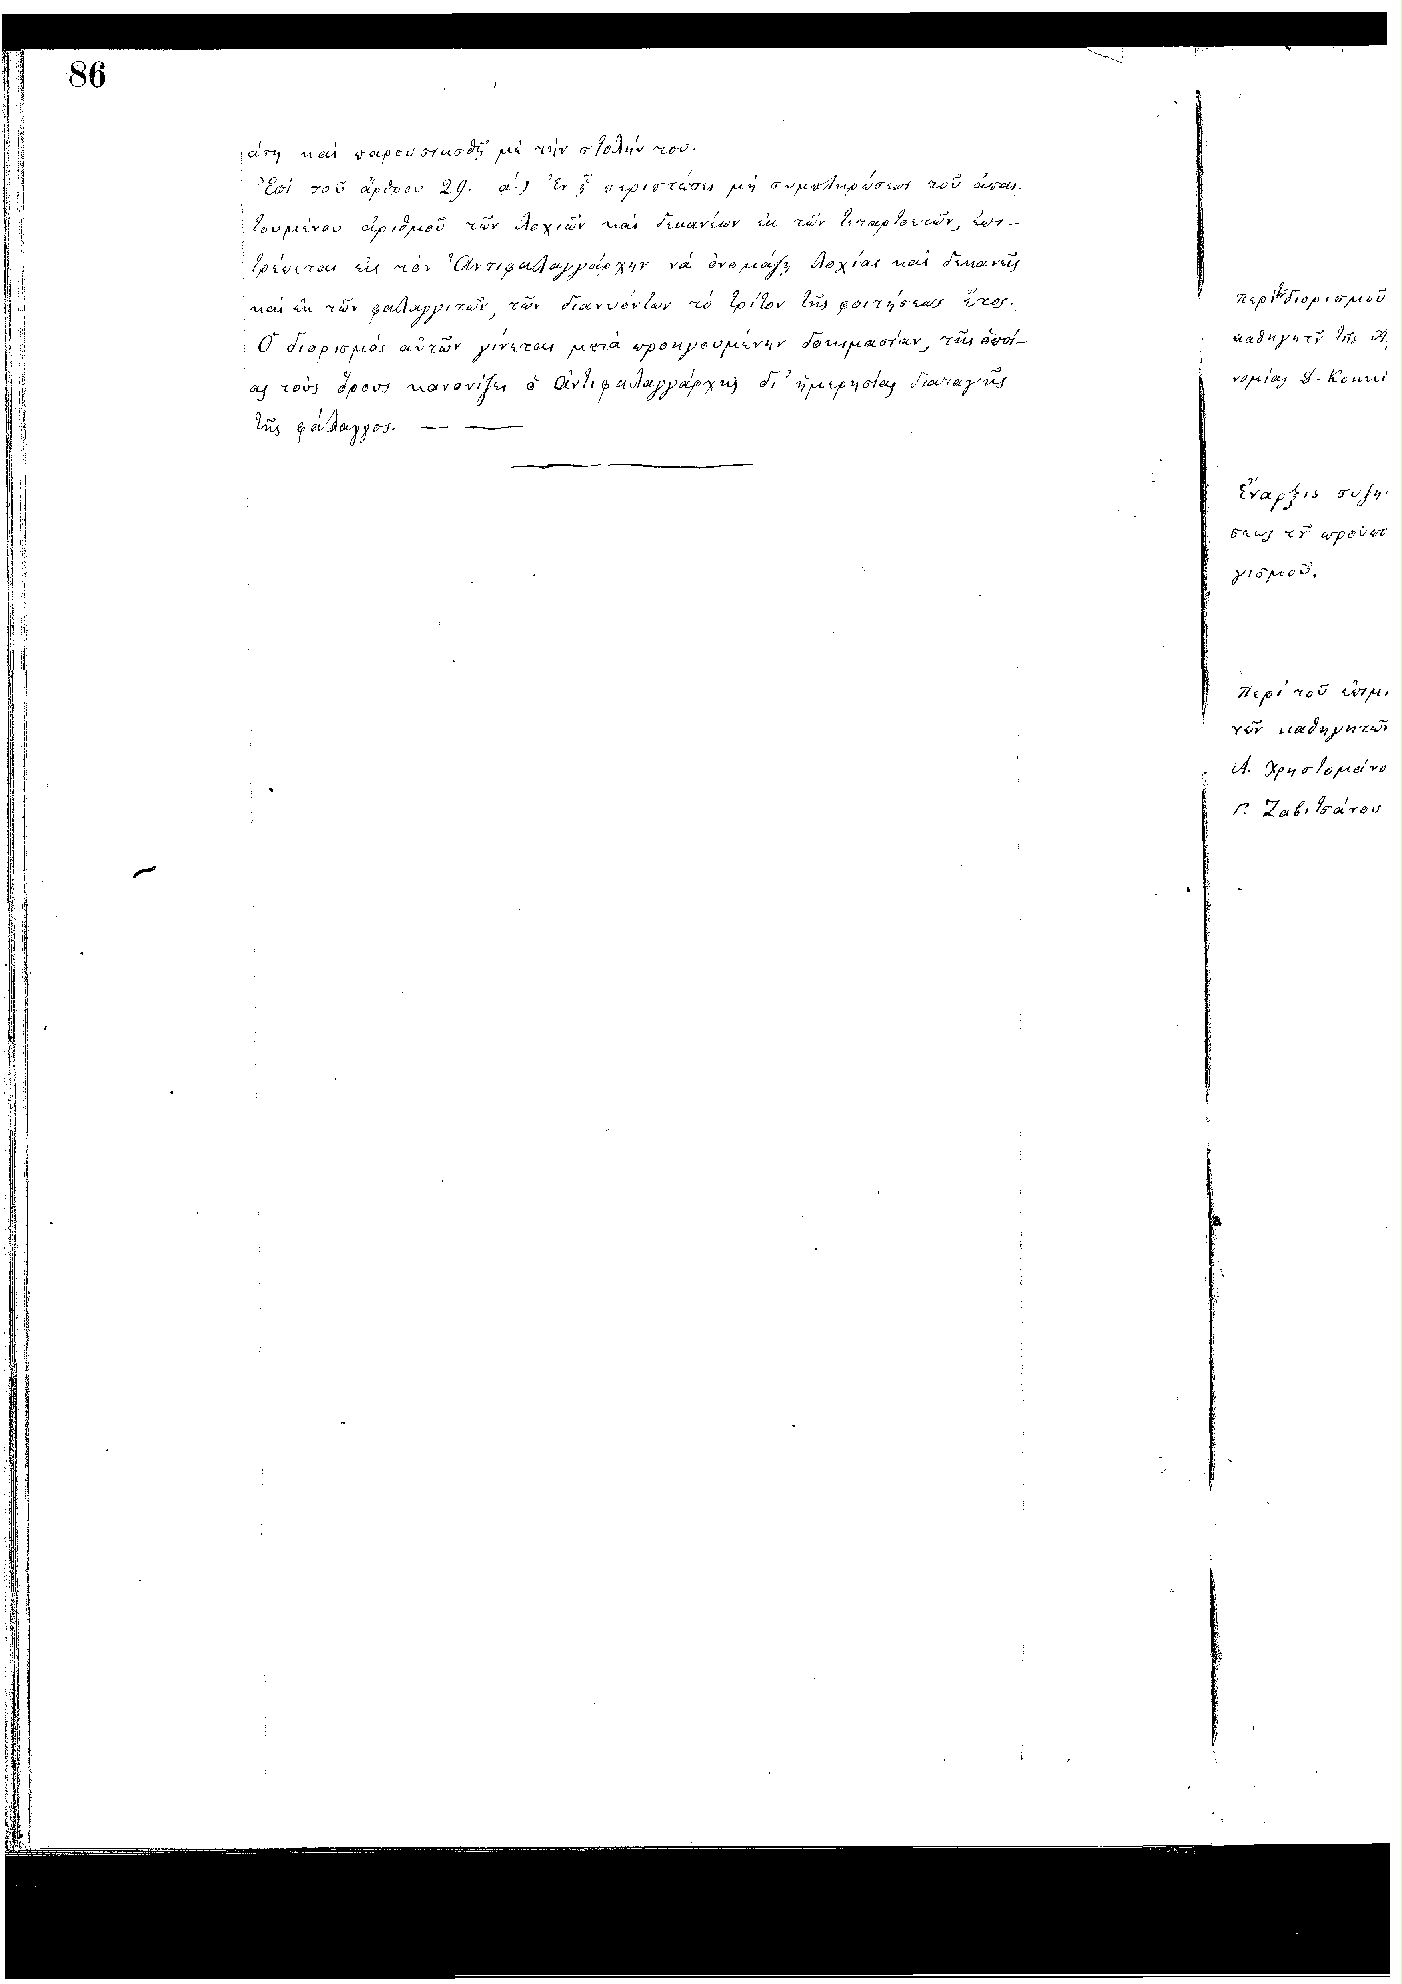 86
άση καὶ παρουσιασθῇ μὲ τὴν στολήν του.
Ἐπὶ τοῦ ἄρθρου 29. α.) Ἐν ᾗ περιστάσει μὴ συμπληρώσεως τοῦ ἀπαι-
τουμένου ἀριθμοῦ τῶν λοχιῶν καὶ δεκανέων ἐκ τῶν τεταρτοετῶν, ἐπι-
τρέπεται εἰς τὸν Ἀντιφαλαγγάρχην νὰ ὀνομάζῃ λοχίας καὶ δεκανεῖς
καὶ ἐκ τῶν φαλαγγιτῶν, τῶν διανυόντων τὸ τρίτον τῆς φοιτήσεως ἔτος.
Ὁ διορισμὸς αὐτῶν γίνεται μετὰ προηγουμένην δοκιμασίαν, τῆς ὁποί-
ας τοὺς ὅρους κανονίζει ὁ Ἀντιφαλαγγάρχης δι' ἡμερησίας διαταγῆς
τῆς φάλαγγος. — —
περὶ διορισμοῦ
καθηγητοῦ τῆς
νομίας Δ. Κοκκί
Ἔναρξις συζη
σεως τοῦ προϋπο
γισμοῦ.
Περὶ τοῦ ἐπιμ.
τῶν καθηγητῶν
Α. Χρηστομάνο
Γ. Ζαβιτσάνου